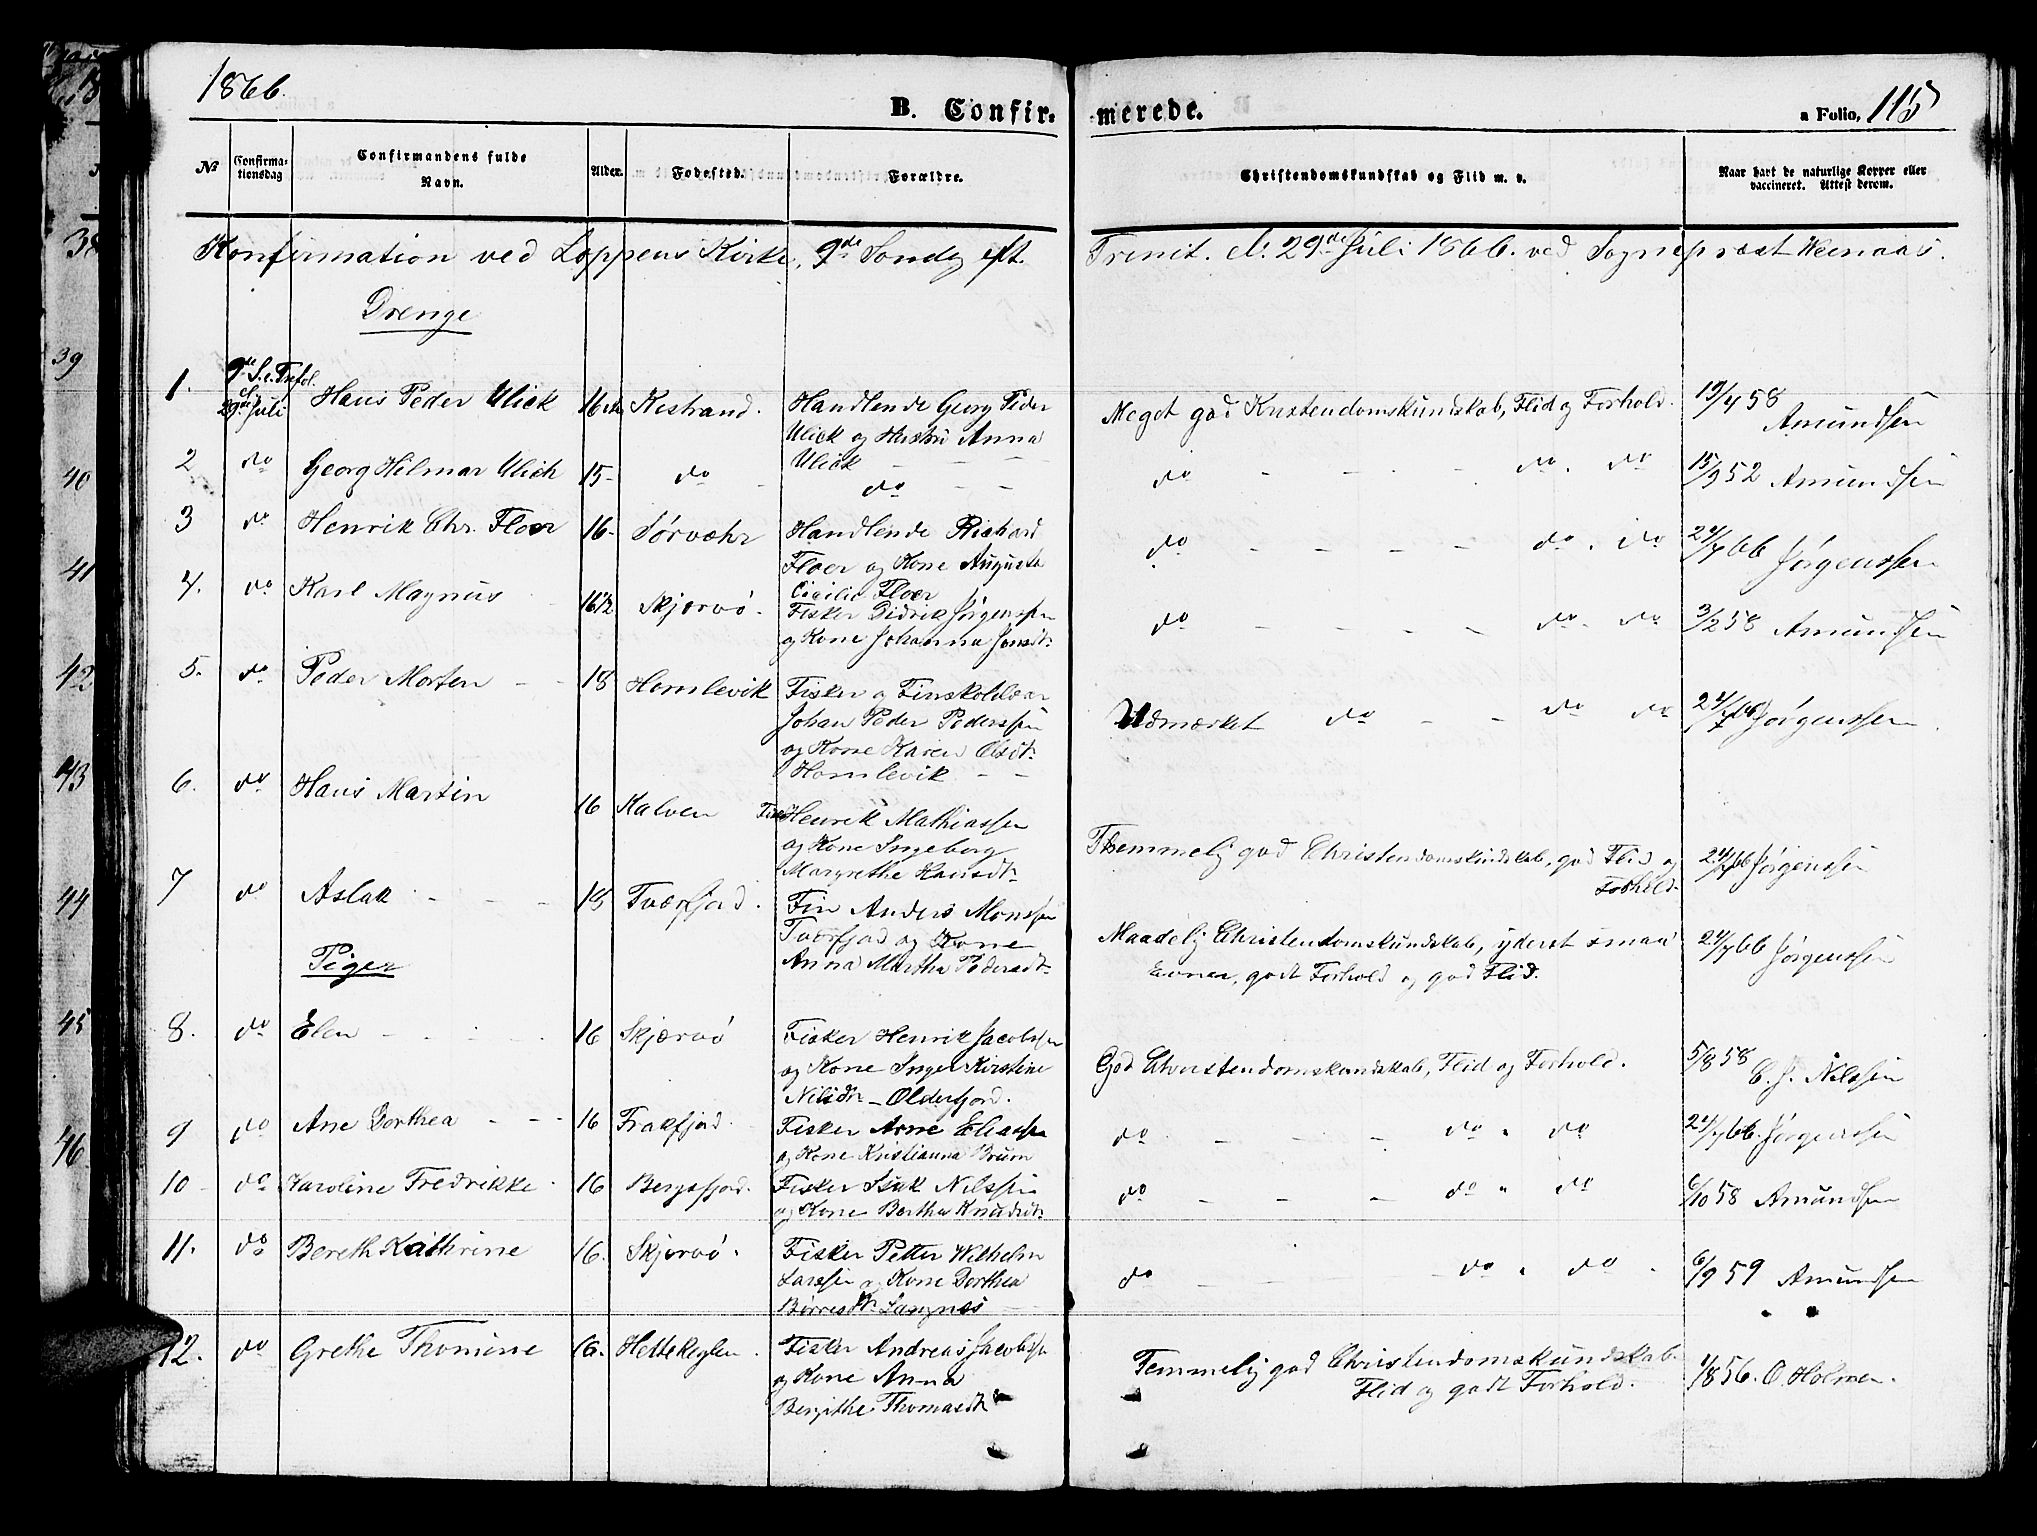 1866.
B. Confirmerede.
a Folio, 115
No
Confirmationsdag
Confirmandens fulde Navn.
Alder.
Fødested.
Forældre.
Christendomskundskab og Flid m. v.
Naar havt de naturlige Kopper eller vaccineret. Attest derom.
Konfirmation ved Loppens Kirke, 9de Søndag eft. Trinit. d. 29de Juli 1866. ved Sognepræst
Drenge
1. 9de S. e. Trefol. d. 29de Juli Hans Peder Ulick 16 Kistrand. Handlende Georg Peder
Ulick og Hustru Anna
Ulick
Meget god Kristendomskundskab, Flid og Forhold. 19/4 58
Amundsen
2 do Georg Hilmar Ulich 15 do do do do. do 15/9 52 Amundsen
3 do Henrik Chr. Floer 16. Sørvær Handlende Richard
Floer og Kone Augusta
Cicilie Floer
do do. do 24/7 66 Jørgenssen
4. do Karl Magnus 16 1/2 Skjervö. Fisker Didrik Jørgenssen
og Kone Johanna Jensdtr
do do. do 3/2 58 Amundsen
5. do Peder Morten 18 Homlevik Fisker og
Johan Peder Pederssen
og Kone Karen Olsdtr
Homlevik
Udmærket do do do 24/7 66 Jørgenssen
6. do Hans Martin 16 Kalven Henrik Mathiassen
og Kone Ingeborg
Margrethe Hansdtr
Themmelig god Christendomskundskab, god Flid og
Forhold.
24/7 66 Jørgenssen
7 do Aslak 18 Tværfjord. Fin Anders Monssen
Tværfjord og Kone
Anna Martha Pedersdtr
Maadelig Christendomskundskab, yderst smaa
Evner, godt Forhold og god Flid.
24/7 66 Jørgenssen
Piger
8. do Elen 16 Skjærvö Fisker Henrik Jacobssen
og Kone Inger Kirstine
Nilsdtr - Olderfjord.
God Christendomskundskab, Flid og Forhold. 5/8 58
Nilssen
9 do Ane Dorthea 16 Frakfjord. Fisker Arne Eliassen
og Kone Kristianna Bruun
do do do 24/7 66. Jørgenssen
10 do Karoline Fredrikke 16 Bergsfjord. Fisker Isak Nilssen
og Kone Berthe Knudsdtr
do do do 6/10 58 Amundsen
11. do Bereth Kathrine 16. Skjervö. Fisker Petter Wilhelm
Larssen og Kone Dorthea
Børresdtr Langnes
do do do 6/9 59 Amundsen
12. do Grethe Thomine 16. Fisker Andreas Jacobssen
og Kone Anna
Bergithe Thomasdtr
Temmelig god Christendomskundskab.
Flid og godt Forhold.
1/8 56. O. Holmen.
38
39
40
41
42
43
44
45
46